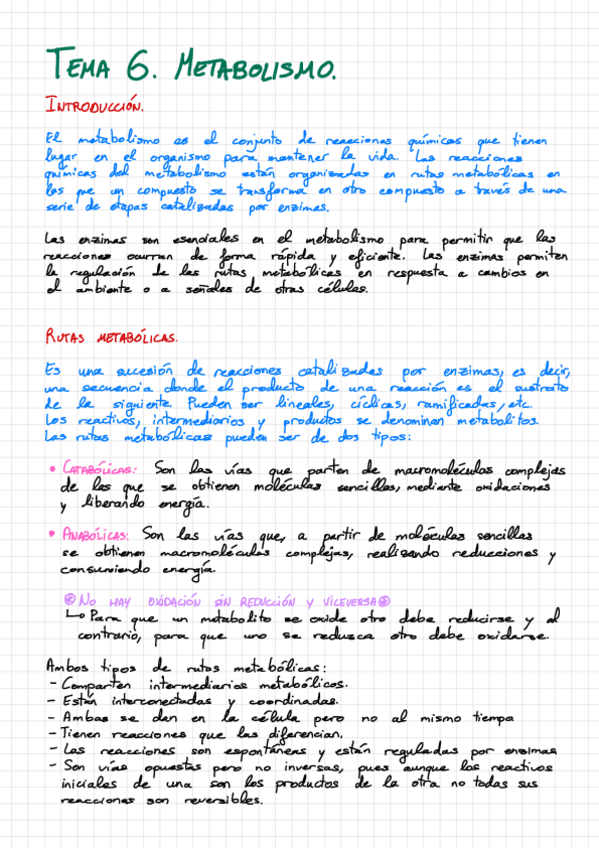 TEMA 6. METABOLISMO.
INTRODUCCIÓN.
El metabolismo es el conjunto de reacciones químicas que tienen
lugar en el organismo para mantener la vida. Las reacciones
químicas del metabolismo están organizadas en rutas metabólicas en
las que un compuesto se transforma en otro compuesto a través de una
serie de etapas catalizadas por enzimas.
Las enzimas son esenciales en el metabolismo para permitir que las
reacciones ocurran de forma rápida y eficiente. Las enzimas permiten
la regulación de las rutas metabólicas en respuesta a cambios en
el ambiente o a señales de otras células.
RUTAS METABÓLICAS.
Es una sucesión de reacciones catalizadas por enzimas, es decir,
una secuencia donde el producto de una reacción es el sustrato
de la siguiente. Pueden ser lineales, cíclicas, ramificadas, etc.
Los reactivos, intermediarios y productos se denominan metabolitos.
Las rutas metabólicas pueden ser de dos tipos:
• CATABÓLICAS: Son las vías que parten de macromoléculas complejas
de las que se obtienen moléculas sencillas, mediante oxidaciones
y liberando energía.
• ANABÓLICAS: Son las vías que, a partir de moléculas sencillas
se obtienen macromoléculas complejas, realizando reducciones y
consumiendo energía.
NO HAY OXIDACIÓN SIN REDUCCIÓN Y VICEVERSA
↳ Para que un metabolito se oxide otro debe reducirse y al
contrario, para que uno se reduzca otro debe oxidarse.
Ambos tipos de rutas metabólicas:
- Comparten intermediarios metabólicos.
- Están interconectadas y coordinadas.
- Ambas se dan en la célula pero no al mismo tiempo
- Tienen reacciones que las diferencian.
- Las reacciones son espontáneas y están reguladas por enzimas
- Son vías opuestas pero no inversas, pues aunque los reactivos
iniciales de una son los productos de la otra no todas sus
reacciones son reversibles.